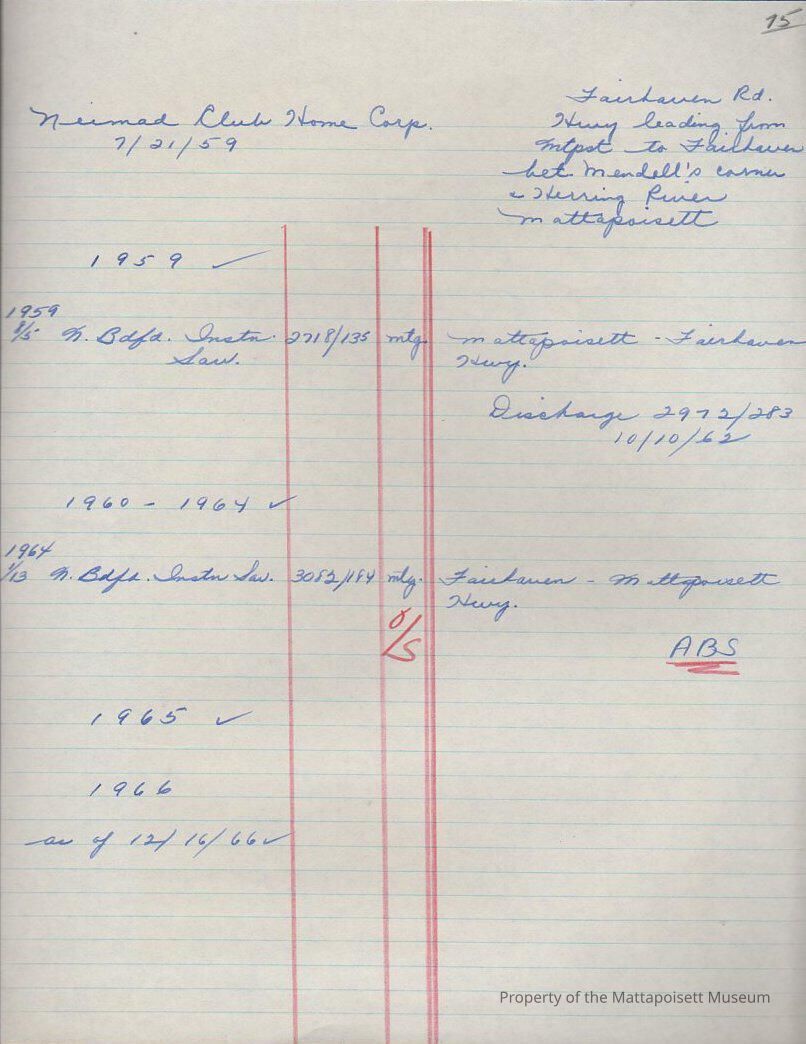 75
Neimad Club Home Corp.
7/21/59
Fairhaven Rd.
Hwy leading from
Mtpst to Fairhaven
bet Mendell's corner
& Herring River
Mattapoisett
1959 ✓
1959
8/5 N. Bdfd. Instn. Sav. 2718/135 mtg. Mattapoisett - Fairhaven Hwy.
Discharge 2972/283
10/10/62
1960 - 1964 ✓
1964
1/13 N. Bdfd. Instn Sav. 3052/184 mtg. Fairhaven - Mattapoisett Hwy.
O/S
ABS
1965 ✓
1966
as of 12/16/66 ✓
Property of the Mattapoisett Museum